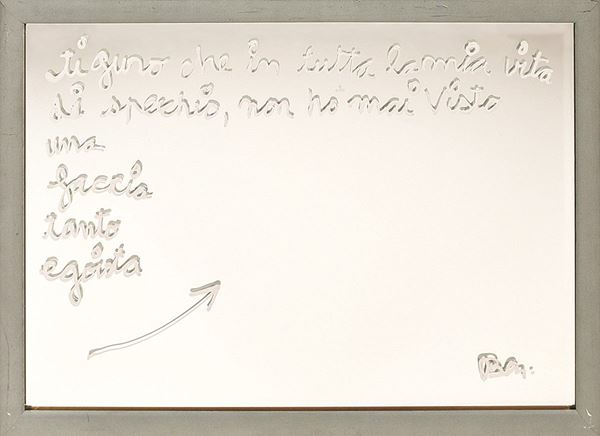 ti giuro che in tutta la mia vita
di specchio, non ho mai visto
una
faccia
tanto
egoista
Ben.